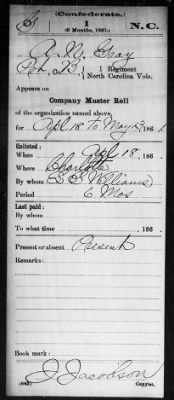 (Confederate.)
G 1 N.C.
(6 Months, 1861.)
R. N. Gray
Pvt., Co. B, 1 Regiment
North Carolina Vols.
Appears on
Company Muster Roll
of the organization named above,
for Apl 18 to May 31, 1861.
Enlisted:
When Apl 18, 186 .
Where Charlotte
By whom L. S. Williams
Period 6 Mos
Last paid:
By whom
To what time 186 .
Present or absent Present
Remarks:
Book mark:
J. Jacobson
(642) Copyist.